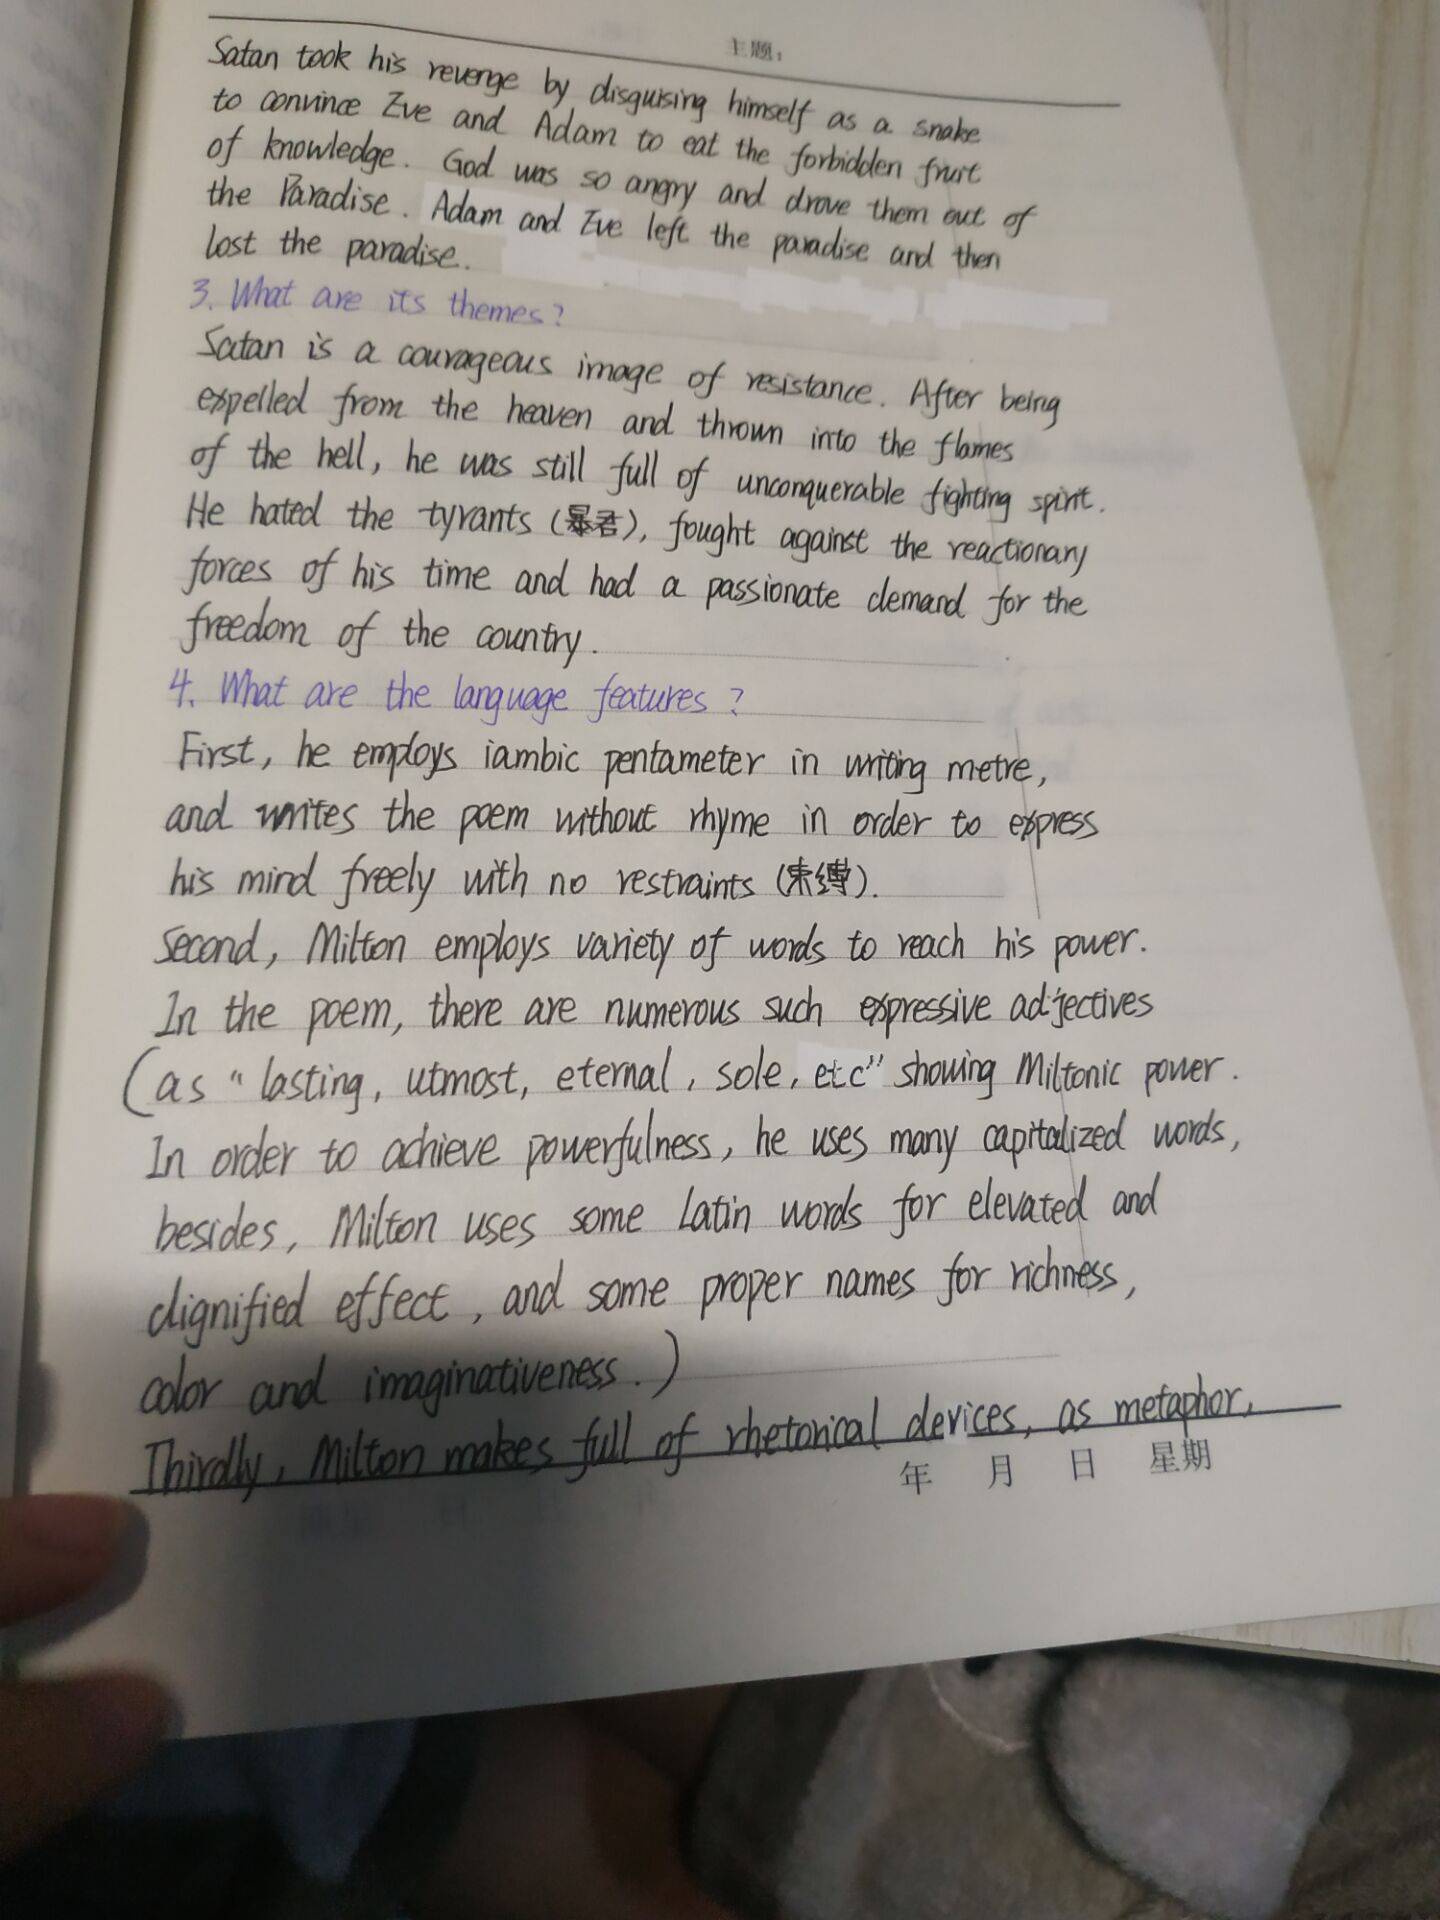 主题:
Satan took his revenge by disguising himself as a snake
to convince Eve and Adam to eat the forbidden fruit
of knowledge. God was so angry and drove them out of
the Paradise. Adam and Eve left the paradise and then
lost the paradise.
3. What are its themes?
Satan is a courageous image of resistance. After being
expelled from the heaven and thrown into the flames
of the hell, he was still full of unconquerable fighting spirit.
He hated the tyrants (暴君), fought against the reactionary
forces of his time and had a passionate demand for the
freedom of the country.
4. What are the language features?
First, he employs iambic pentameter in writing metre,
and writes the poem without rhyme in order to express
his mind freely with no restraints (束缚).
Second, Milton employs variety of words to reach his power.
In the poem, there are numerous such expressive adjectives
(as "lasting, utmost, eternal, sole, etc" showing Miltonic power.
In order to achieve powerfulness, he uses many capitalized words,
besides, Milton uses some Latin words for elevated and
dignified effect, and some proper names for richness,
color and imaginativeness.)
Thirdly, Milton makes full of rhetorical devices, as metaphor,
年 月 日 星期